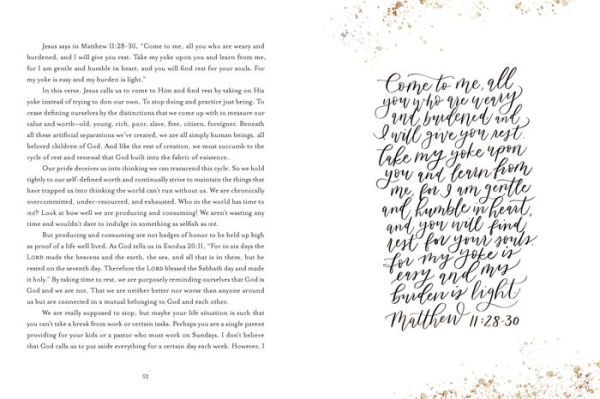 Jesus says in Matthew 11:28-30, “Come to me, all you who are weary and
burdened, and I will give you rest. Take my yoke upon you and learn from me,
for I am gentle and humble in heart, and you will find rest for your souls. For
my yoke is easy and my burden is light.”
In this verse, Jesus calls us to come to Him and find rest by taking on His
yoke instead of trying to don our own. To stop doing and practice just being. To
cease defining ourselves by the distinctions that we come up with to measure our
value and worth—old, young, rich, poor, slave, free, citizen, foreigner. Beneath
all these artificial separations we’ve created, we are all simply human beings, all
beloved children of God. And like the rest of creation, we must succumb to the
cycle of rest and renewal that God built into the fabric of existence.
Our pride deceives us into thinking we can transcend this cycle. So we hold
tightly to our self-defined worth and continually strive to maintain the things
that have trapped us into thinking the world can’t run without us. We are chronically
overcommitted, under-resourced, and exhausted. Who in the world has time to
rest? Look at how well we are producing and consuming! We aren’t wasting any
time and wouldn’t dare to indulge in something as selfish as rest.
But producing and consuming are not badges of honor to be held up high
as proof of a life well lived. As God tells us in Exodus 20:11, “For in six days the
LORD made the heavens and the earth, the sea, and all that is in them, but he
rested on the seventh day. Therefore the LORD blessed the Sabbath day and made
it holy.” By taking time to rest, we are purposely reminding ourselves that God is
God and we are not. That we are neither better nor worse than anyone around
us but are connected in a mutual belonging to God and each other.
We are really supposed to stop, but maybe your life situation is such that
you can’t take a break from work or certain tasks. Perhaps you are a single parent
providing for your kids or a pastor who must work on Sundays. I don’t believe
that God calls us to put aside everything for a certain day each week. However, I
52
Come to me, all
you who are weary
and burdened and
I will give you rest.
Take my yoke upon
you and learn from
me, for I am gentle
and humble in heart,
and you will find
rest for your souls
for my yoke is
easy and my
burden is light
Matthew 11:28-30